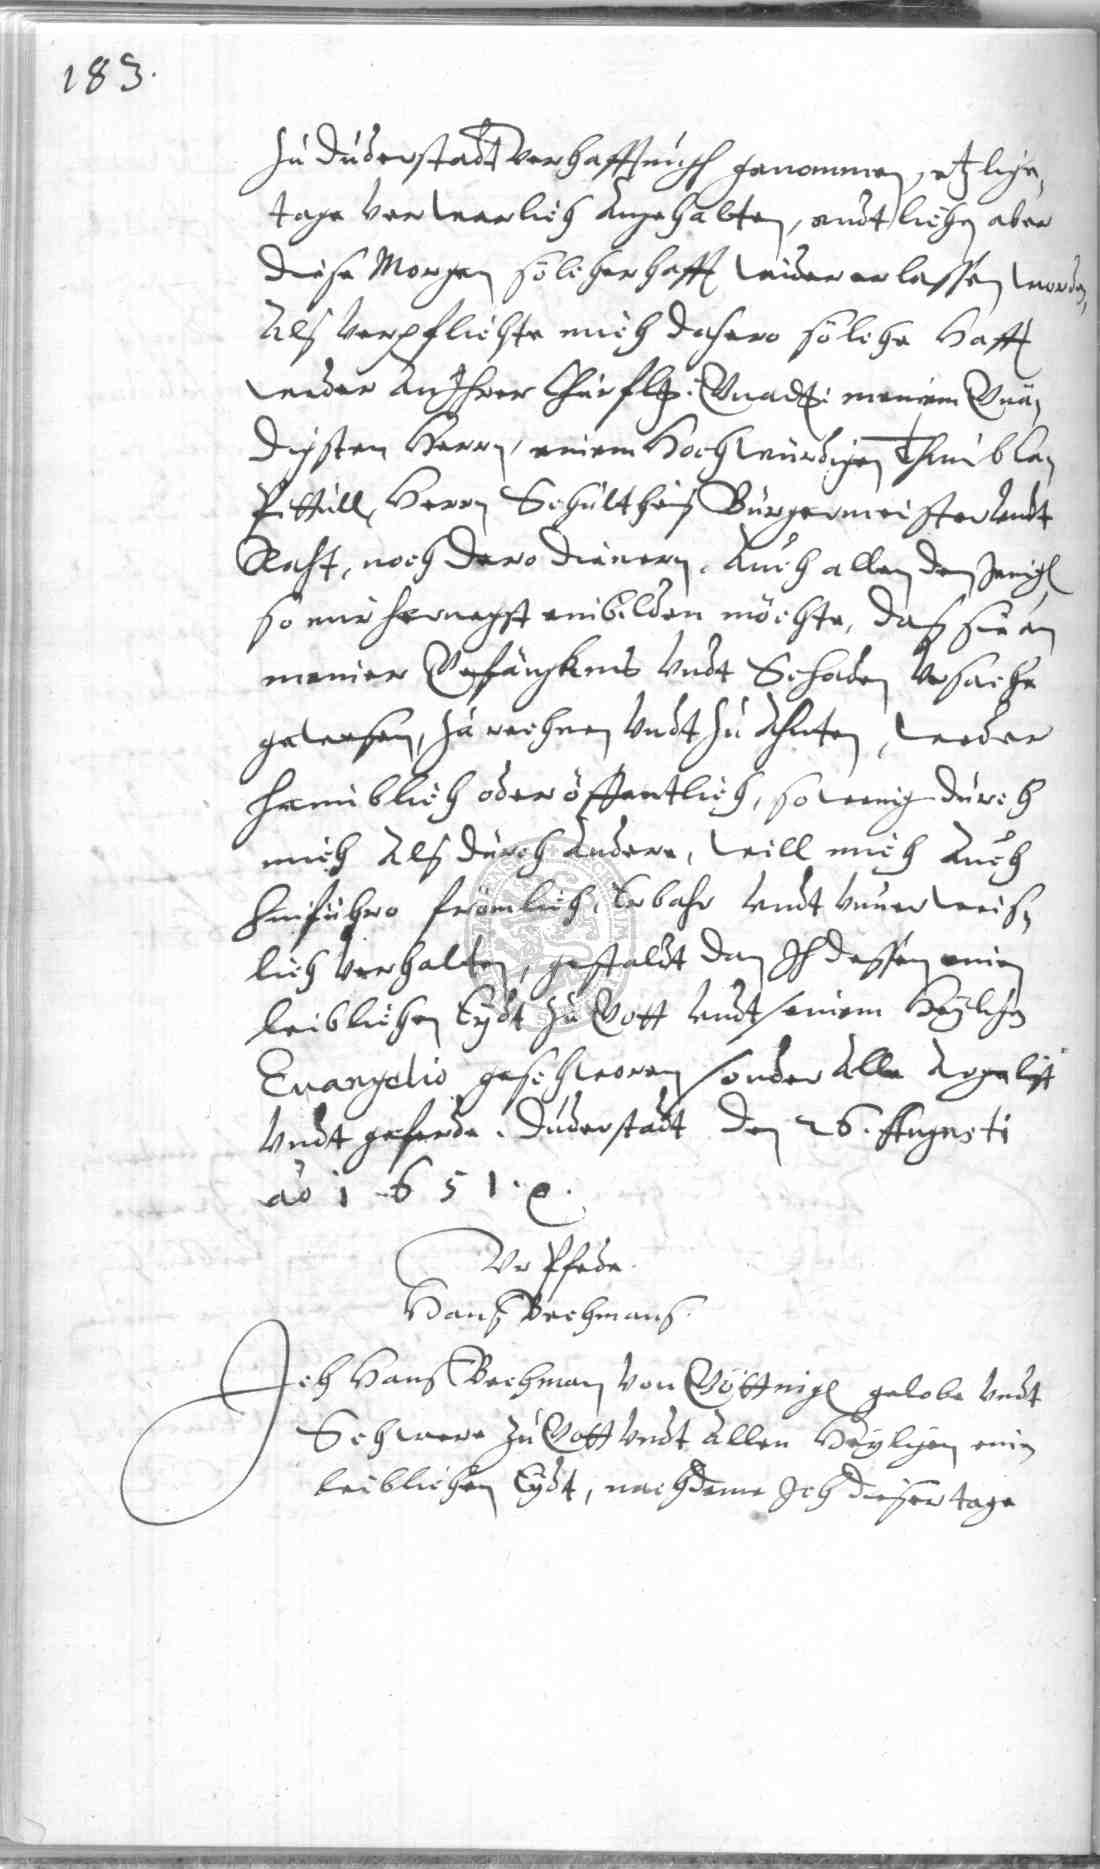 183.
zu Duderstadt verhafftlich genommen, etzliche
tage verwarlich angehalten, endtlichen aber
diese Morgen solicher hafft wider erlassen worden,
Als verpflichte mich dahero soliche Hafft
weder an Ihrer Churfltz: Gnadt: meinem Gnä
digsten Herrn, einem Hochwürdigen Thumb Ca
pittull, Herrn Schultheiß Bürgermeister undt
Raht, noch dero dienern, Auch allen den Jenig
so mir hernegst einbilden möchte, daß sie an
meiner Gefängknis undt Schaden Ursache
gewesen, zu rechnen undt zu Ahnten, weder
heimblich oder öffentlich, so wenig durch
mich Als durch Andere, will mich Auch
hinführo frömlich, Erbahr undt unverweiß
lich verhalten, gestaldt dan Ich dessen einen
leiblichen Eydt zu Gott undt seinem Heyligen
Euangelio geschworen sonder Alle Argelist
undt geferde. Duderstadt den 26. Augusti
ao 1651.
Urpfede
Hanß Bechmans.
Ich Hanß Bechman von Göttnig gelobe undt
Schwere zu Gott undt Allen Heyligen ein
leiblichen Eydt, nachdeme Ich dieser tage